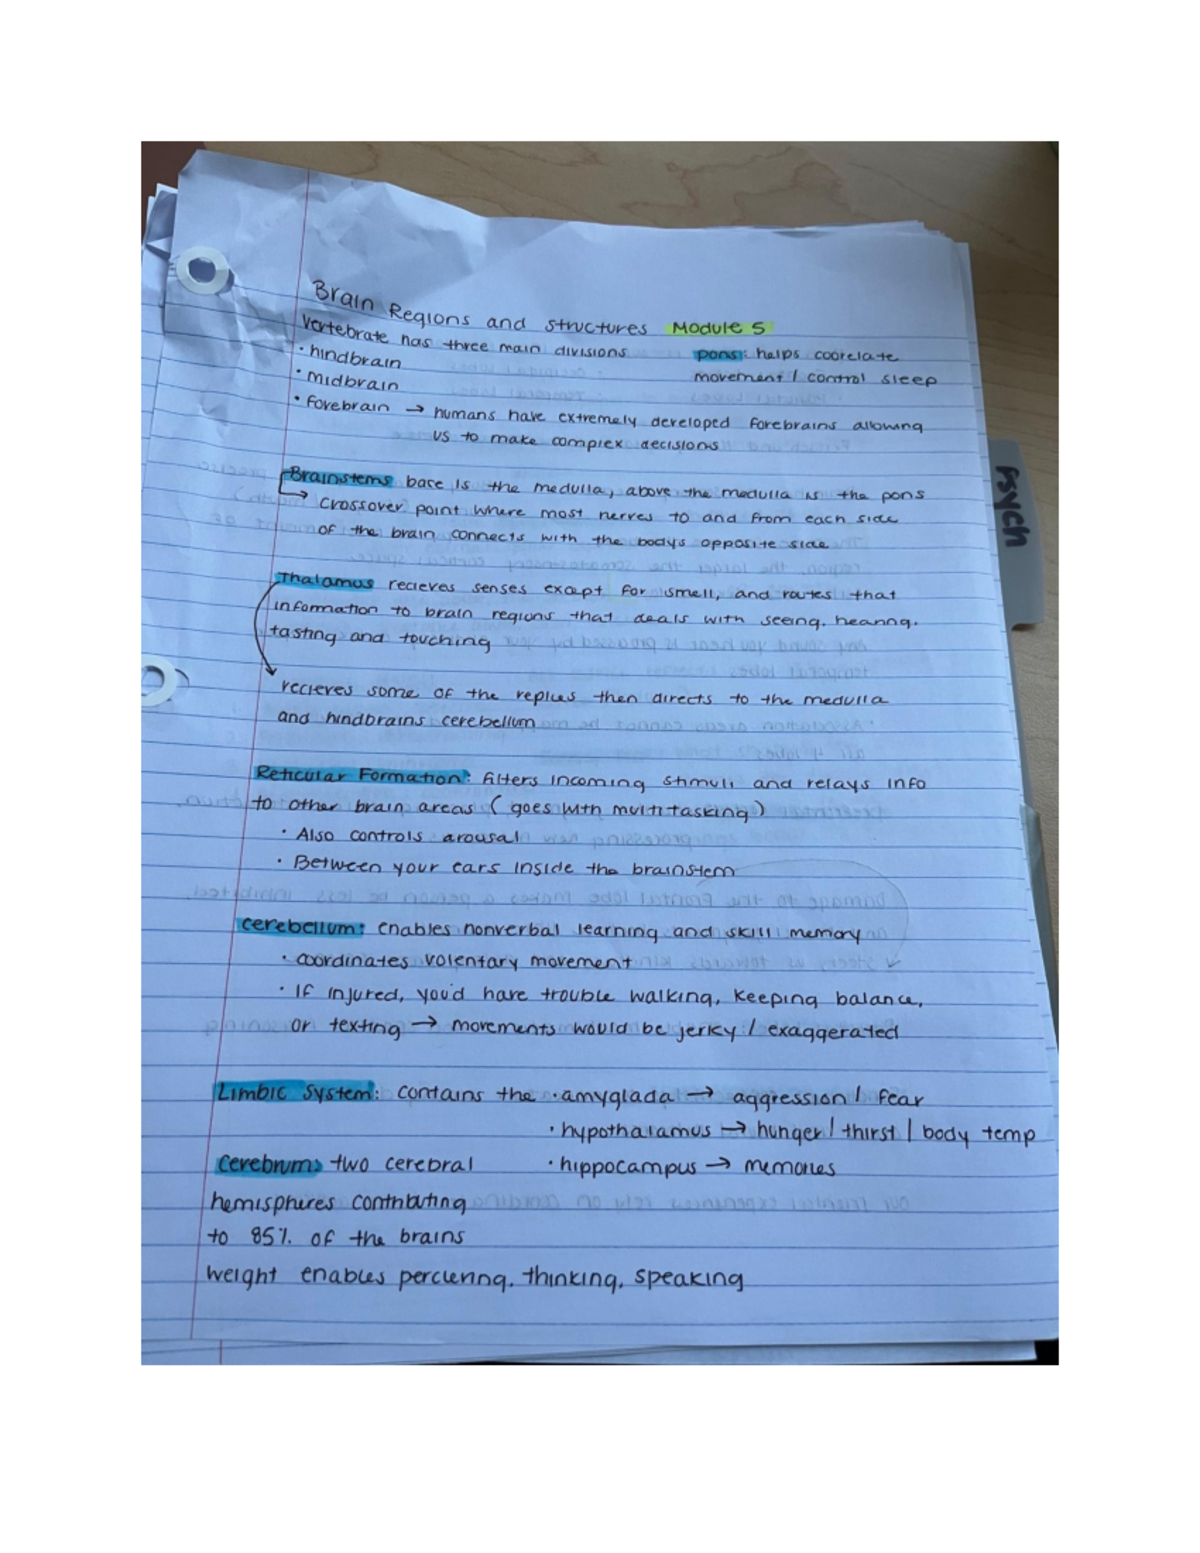 Brain Regions and structures Module 5
vertebrate has three main divisions
pons: helps coorelate
movement / control sleep
· hindbrain
· midbrain
· forebrain → humans have extremely developed forebrains allowing
us to make complex decisions
Brainstems base is the medulla, above the medulla is the pons
→ crossover point where most nerves to and from each side
of the brain connects with the bodys opposite side
Thalamus recieves senses except for smell, and routes that
information to brain regions that deals with seeing, hearing,
tasting and touching
recieves some of the replies then directs to the medulla
and hindbrains cerebellum
Reticular Formation: filters incoming stimuli and relays info
to other brain areas (goes with multitasking)
· Also controls arousal
· Between your ears inside the brainstem
cerebellum: enables nonverbal learning and skill memory
· coordinates volentary movement
· If injured, you'd have trouble walking, keeping balance,
or texting → movements would be jerky / exaggerated
Limbic System: contains the · amyglada → aggression / fear
· hypothalamus → hunger / thirst / body temp
· hippocampus → memories
Cerebrum: two cerebral
hemispheres contributing
to 85% of the brains
weight enables percieving, thinking, speaking
Psych